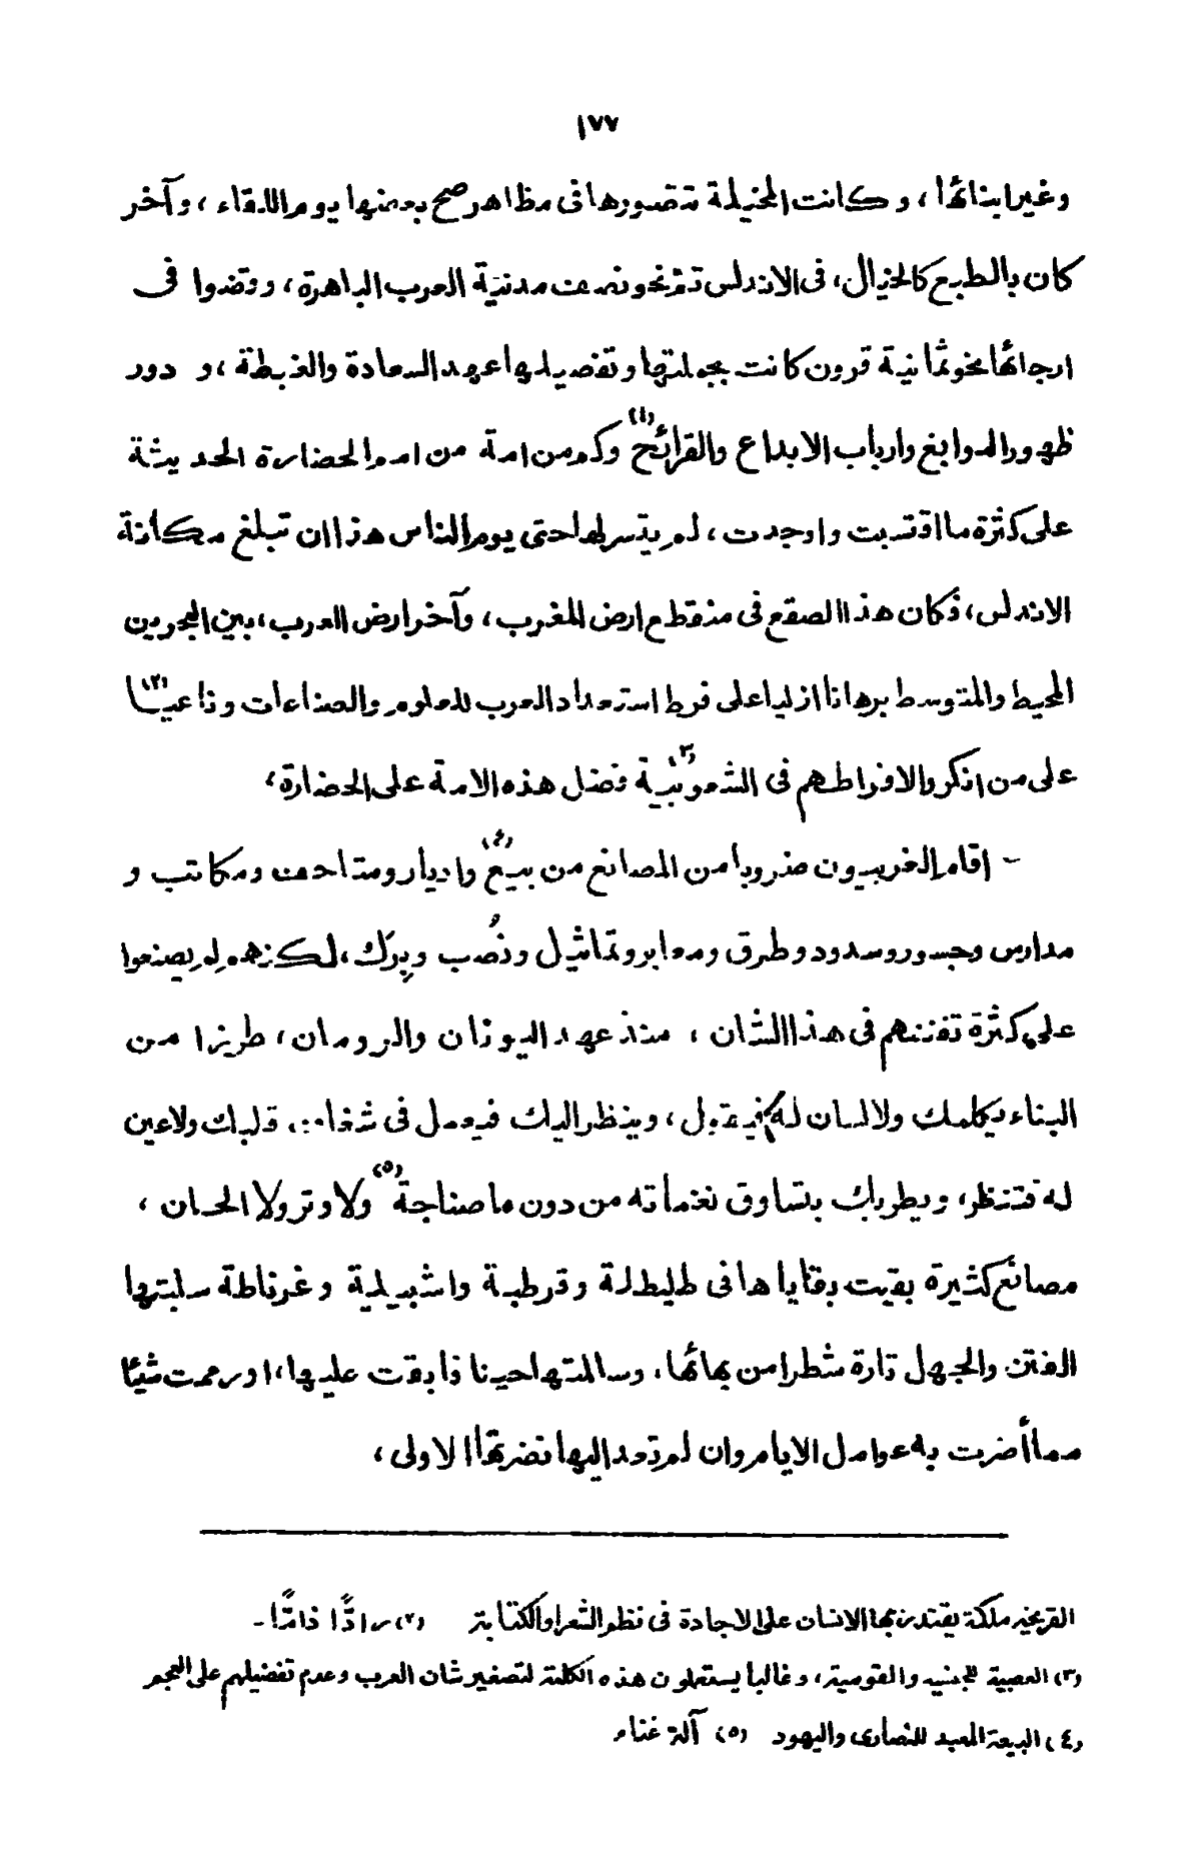 ١٧٧
وغير ابنائها ، وكانت المخيلة تتصورها فى مظاهر صح بعضها يوم اللقاء ، وآخر
كان بالطبع كالخيال، فى الاندلس تمت نحو نصف مدنية العرب الباهرة ، وقضوا فى
ارجائها نحو ثمانية قرون كانت بجملتها وتفصيلها عهد السعادة والغبطة ، و دور
ظهور النوابغ وارباب الابداع والقرائح (١) وكم من امة من امم الحضارة الحديثة
على كثرة ما اقتبست واوجدت ، لم يتسر لها حتى يوم الناس هذا ان تبلغ مكانة
الاندلس، فكان هذا الصقع فى منقطع ارض المغرب ، وآخر ارض العرب ، بين البحرين
المحيط والمتوسط برهانا ازليا على فرط استعداد العرب للعلوم والصناعات وناعيًا (٢)
على من انكروا لافراطهم فى الشعوبية (٣) فضل هذه الامة على الحضارة ،
- اقام الغربيون ضروبا من المصانع من بيع (٤) واديار ومتاحف ومكاتب و
مدارس وجسور وسدود وطرق ومعابر وتماثيل ونُصُب وبِرَك ، لكنهم لم يصنعوا
على كثرة تفننهم فى هذا الشان ، منذ عهد اليونان والرومان ، طرزا من
البناء يكلمك ولا لسان له فيقول ، وينظر اليك فيعمل فى شغاف قلبك ولا عين
له فتنظر، ويطربك بتساوق نغماته من دون ما صناجة (٥) ولا وتر ولا الحان ،
مصانع كثيرة بقيت بقايا ها فى طليطلة وقرطبة واشبيلية وغرناطة سلبتها
الفتن والجهل تارة شطرا من بهائها ، وسالمتها حينا فابقت عليها ، او رممت شيئا
مما أضرت به عوامل الايام وان لم تعد اليها نضرتها الاولى ،
القريحة ملكة يقتدر بها الانسان على الاجادة فى نظم الشعر او الكتابة (٢) رادًّا ذامًّا -
(٣) العصبية للجنسية والقومية ، وغالبا يستعملون هذه الكلمة لتصغير شان العرب وعدم تفضيلهم على العجم
(٤) البيعة المعبد للنصارى واليهود (٥) آلة غناء